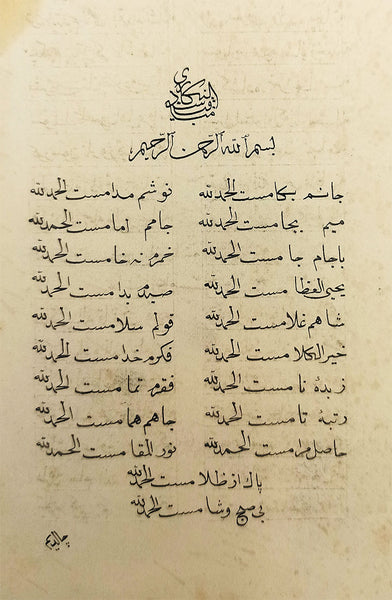 بسم الله الرحمن الرحيم
جانم بكامست الحمدلله نوشم مدامست الحمدلله
ميم بجامست الحمدلله جامم امامست الحمدلله
باجام جامست الحمدلله خمر نه خامست الحمدلله
يحيى العظامست الحمدلله صيدم بدامست الحمدلله
شاهم غلامست الحمدلله قولم سلامست الحمدلله
خير الكلامست الحمدلله فكرم خدامست الحمدلله
زبدۀ نامست الحمدلله فقرم تمامست الحمدلله
رتبۀ تامست الحمدلله جاهم همامست الحمدلله
حاصل مرامست الحمدلله نور المقامست الحمدلله
پاك از ظلامست الحمدلله
بى صبح وشامست الحمدلله